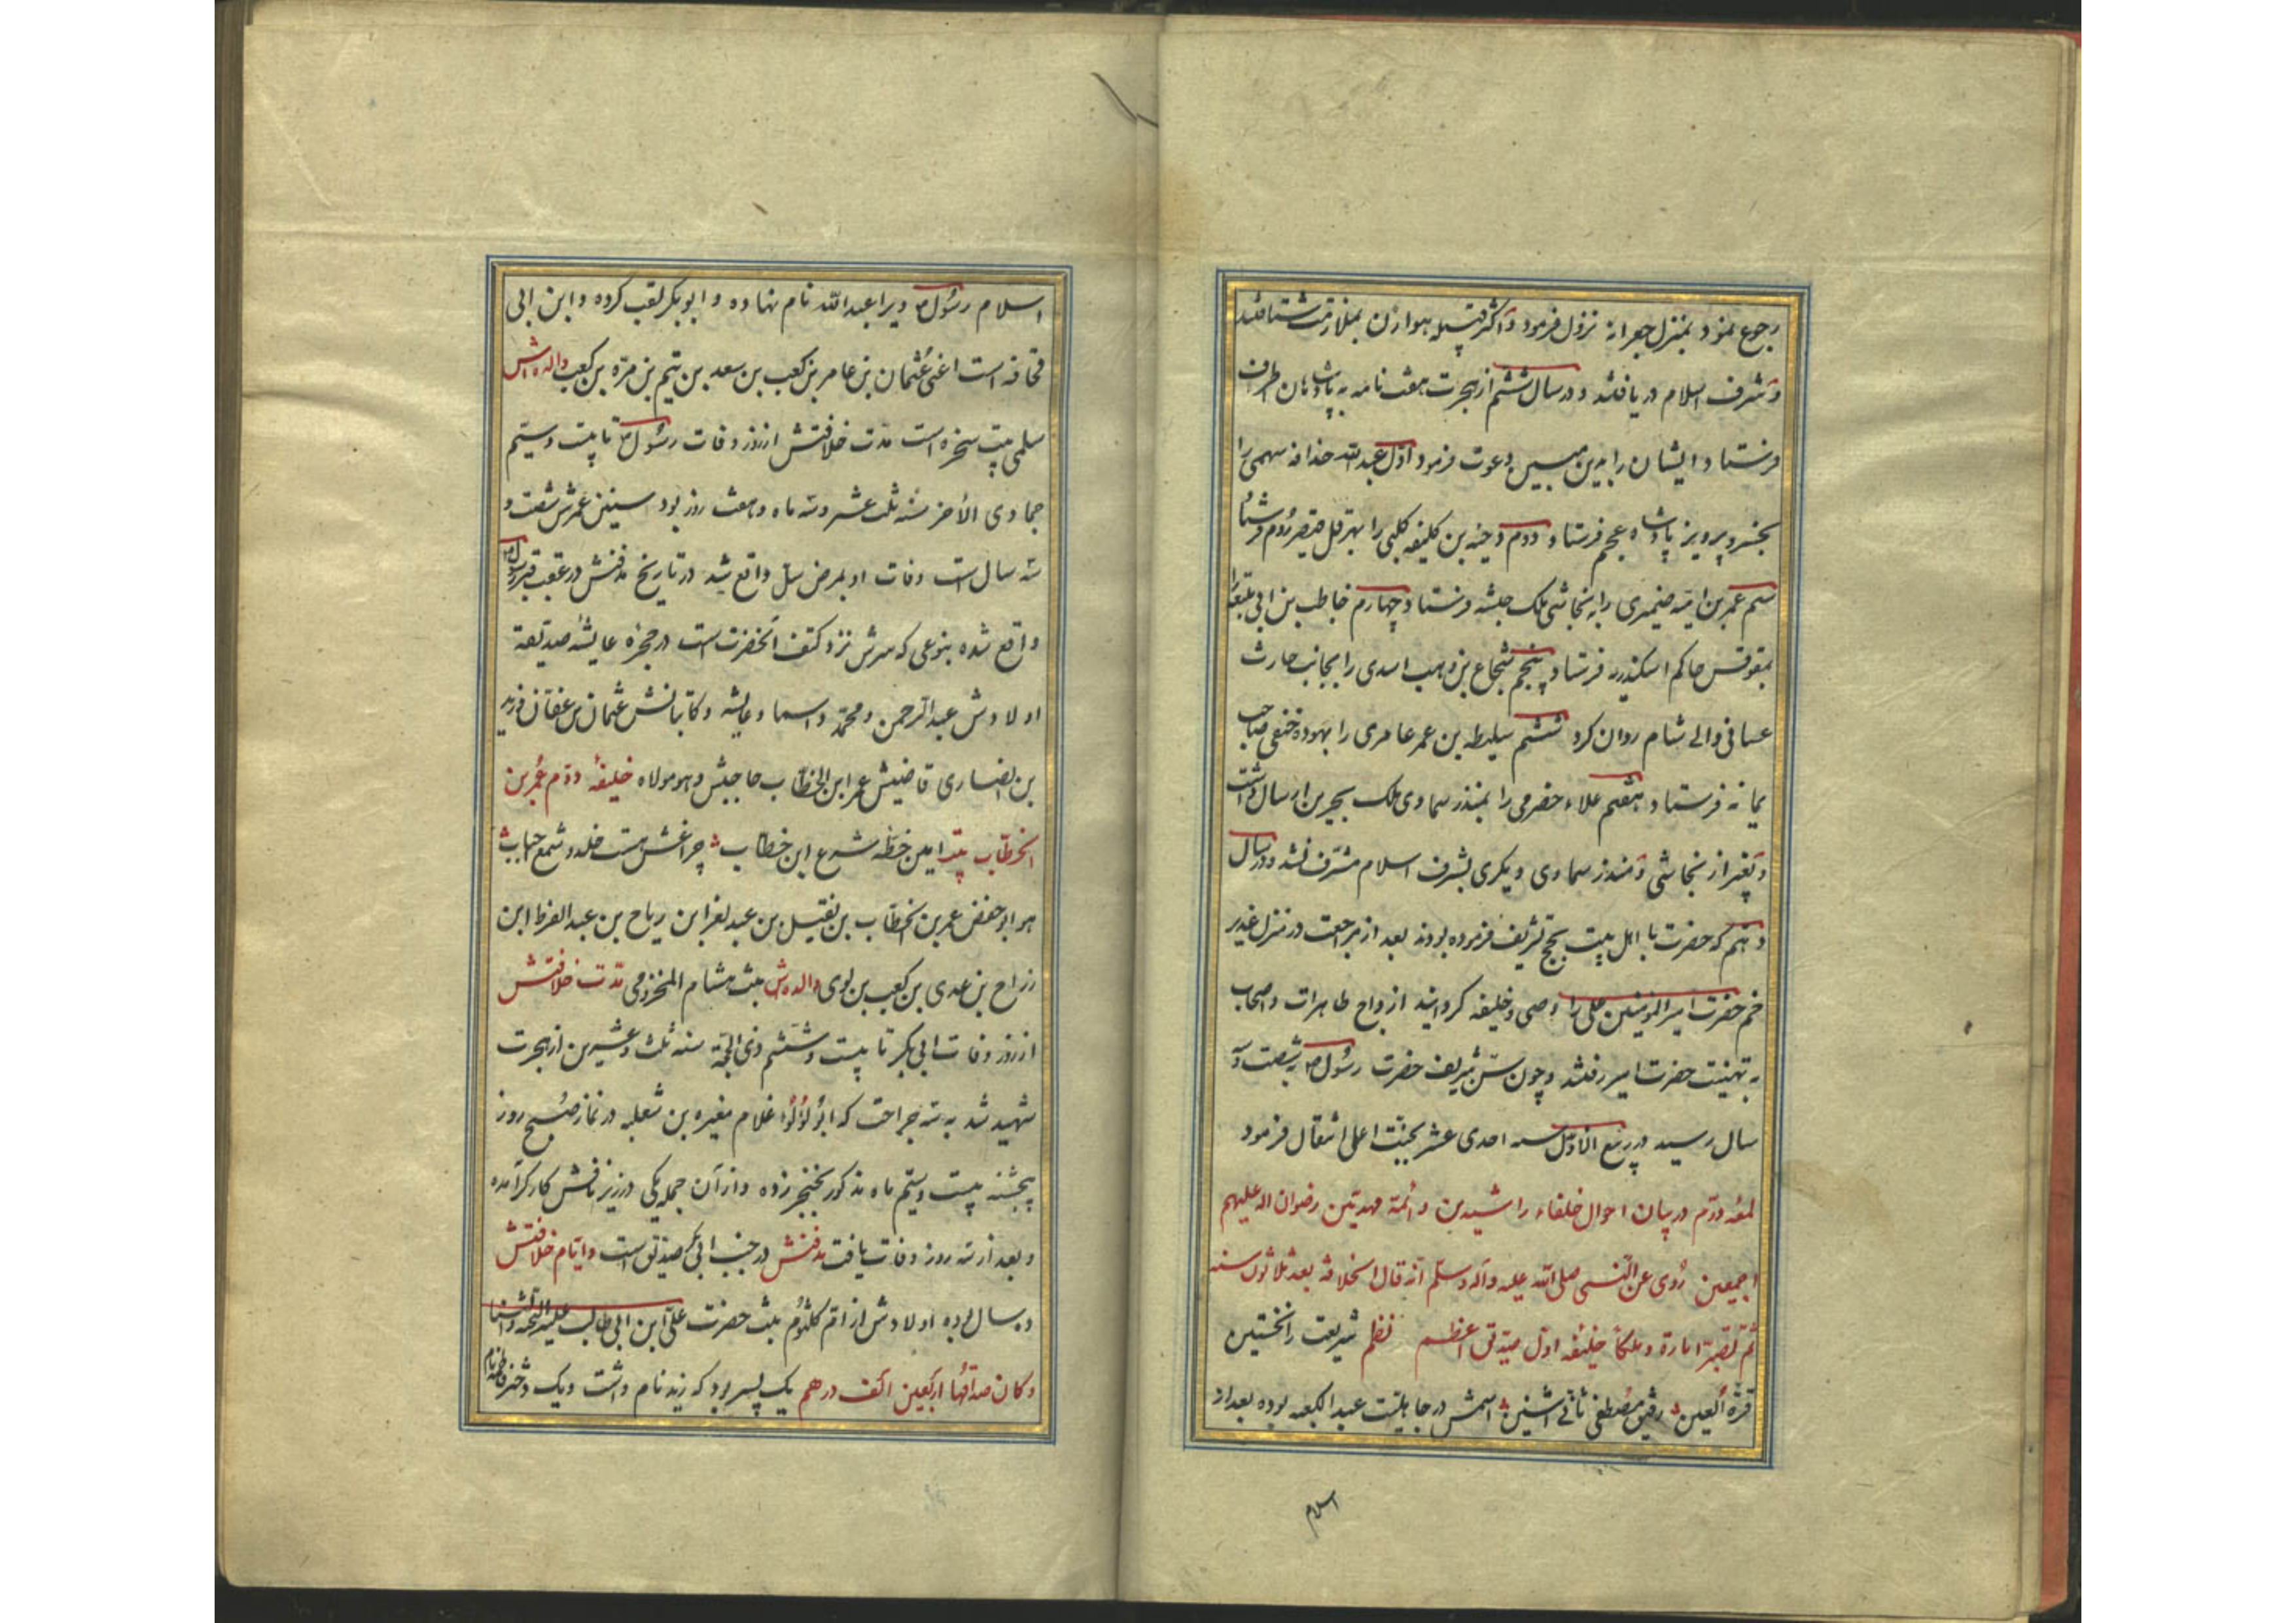 رجوع نمود بمنزل جعرانه نزول فرمود و اکثر قبیله هوازن بملازمت شتافتند
و شرف اسلام دریافتند و در سال ششم از هجرت هفت نامه به پادشاهان اطراف
فرستاد و ایشان را بدین مبین دعوت فرمود اول عبدالله حذافه سهمی را
بخسرو پرویز پادشاه عجم فرستاد دوم دحیه بن کلیفه کلبی را بهرقل قیصر روم فرستاد
سیم عمر بن امیه ضیمری را به نجاشی ملک حبشه فرستاد چهارم خاطب بن ابی بلتعه را
بمقوقس حاکم اسکندریه فرستاد پنجم شجاع بن وهب اسدی را بجانب حارث
غسانی والی شام روان کرد ششم سلیطه بن عمر عامری را بهوده حنفی صاحب
یمانه فرستاد هفتم علاء حضرمی را بمنذر سماوی ملک بحرین ارسال داشت
و بغیر از نجاشی و منذر سماوی دیگری بشرف اسلام مشرف نشد و در سال
دهم که حضرت با اهل بیت بحج تشریف فرموده بودند بعد از مراجعت در منزل غدیر
خم حضرت امیرالمؤمنین علی را وصی و خلیفه کردانید ازواج طاهرات و اصحاب
به تهنیت حضرت امیر رفتند و چون سن شریف حضرت رسول ص به شصت و
سال رسید در ربیع الاول سنه احدی عشر بجنت اعلی انتقال فرمود
لمعه دوم در بیان احوال خلفاء راشیدین و ائمة مهدیین رضوان اله علیهم
اجمعین رُوی عن النبی صلی الله علیه وآله وسلم انه قال الخلافة بعد ثلاثون سنه
ثم تصیر امارة و ملکاً خلیفه اول صدیق اعظم نظم شریعت را نخستین
قرة العین رفیق مصطفی ثانی اثنین اسمش در جاهلیت عبدالکعبه بوده بعد از
اسلام
اسلام رسول ص ویرا عبدالله نام نهاده و ابوبکر لقب کرده و ابن ابی
قحافه است اعنی عثمان بن عامر بن کعب بن سعد بن تیم بن مرّه بن کعب والده اش
سلمی بنت سخره است مدت خلافتش از روز وفات رسول ص تا بیت وسیم
جمادی الأخر سنه ثلث عشر و سه ماه و هفت روز بود سنین عمرش شصت و
سه سال است وفات او بمرض سل واقع شد در تاریخ مدفنش در عقب قبر رسول ص
واقع شده بنوعی که سرش نزد کتف آنحضرت است در حجره عایشه صدیقه
اولادش عبدالرحمن و محمّد و اسما و عایشه و کاتبانش عثمان بن عفان و زید
بن انصاری قاضیش عمر ابن الخطاب حاجبش و هو مولاه خلیفه دوم عُمر بن
الخطّاب بیت امین خطه شرع ابن خطاب چراغش هست خلد و شمع
هو ابوحفص عمر بن الخطّاب بن نفیل بن عبد لعزا بن ریاح بن عبد الفرظ ابن
زراح بن عدی بن کعب بن لوی والده ش بنت هشام المخزومی مدت خلافتش
از روز وفات ابی بکر تا بیست و ششم ذی الحجة سنه ثلث و عشرین از هجرت
شهید شد به سه جراحت که ابو لؤلؤا غلام مغیره بن شعلبه در نماز صبح روز
پنجشنبه بیست وسیم ماه مذکور بخنجر زده و از آن جمله یکی در زیر نافش کارکر آمده
و بعد از سه روز وفات یافت مدفنش در جنب ابی بکر صدیق است و ایام خلافتش
ده سال بوده اولادش از ام کلثوم بنت حضرت علی ابن ابی طالب علیه التحیة والثنا
و کان صداقها اربعین الف درهم یک پسر بود که زید نام داشت و یک دختر فاطمه نام